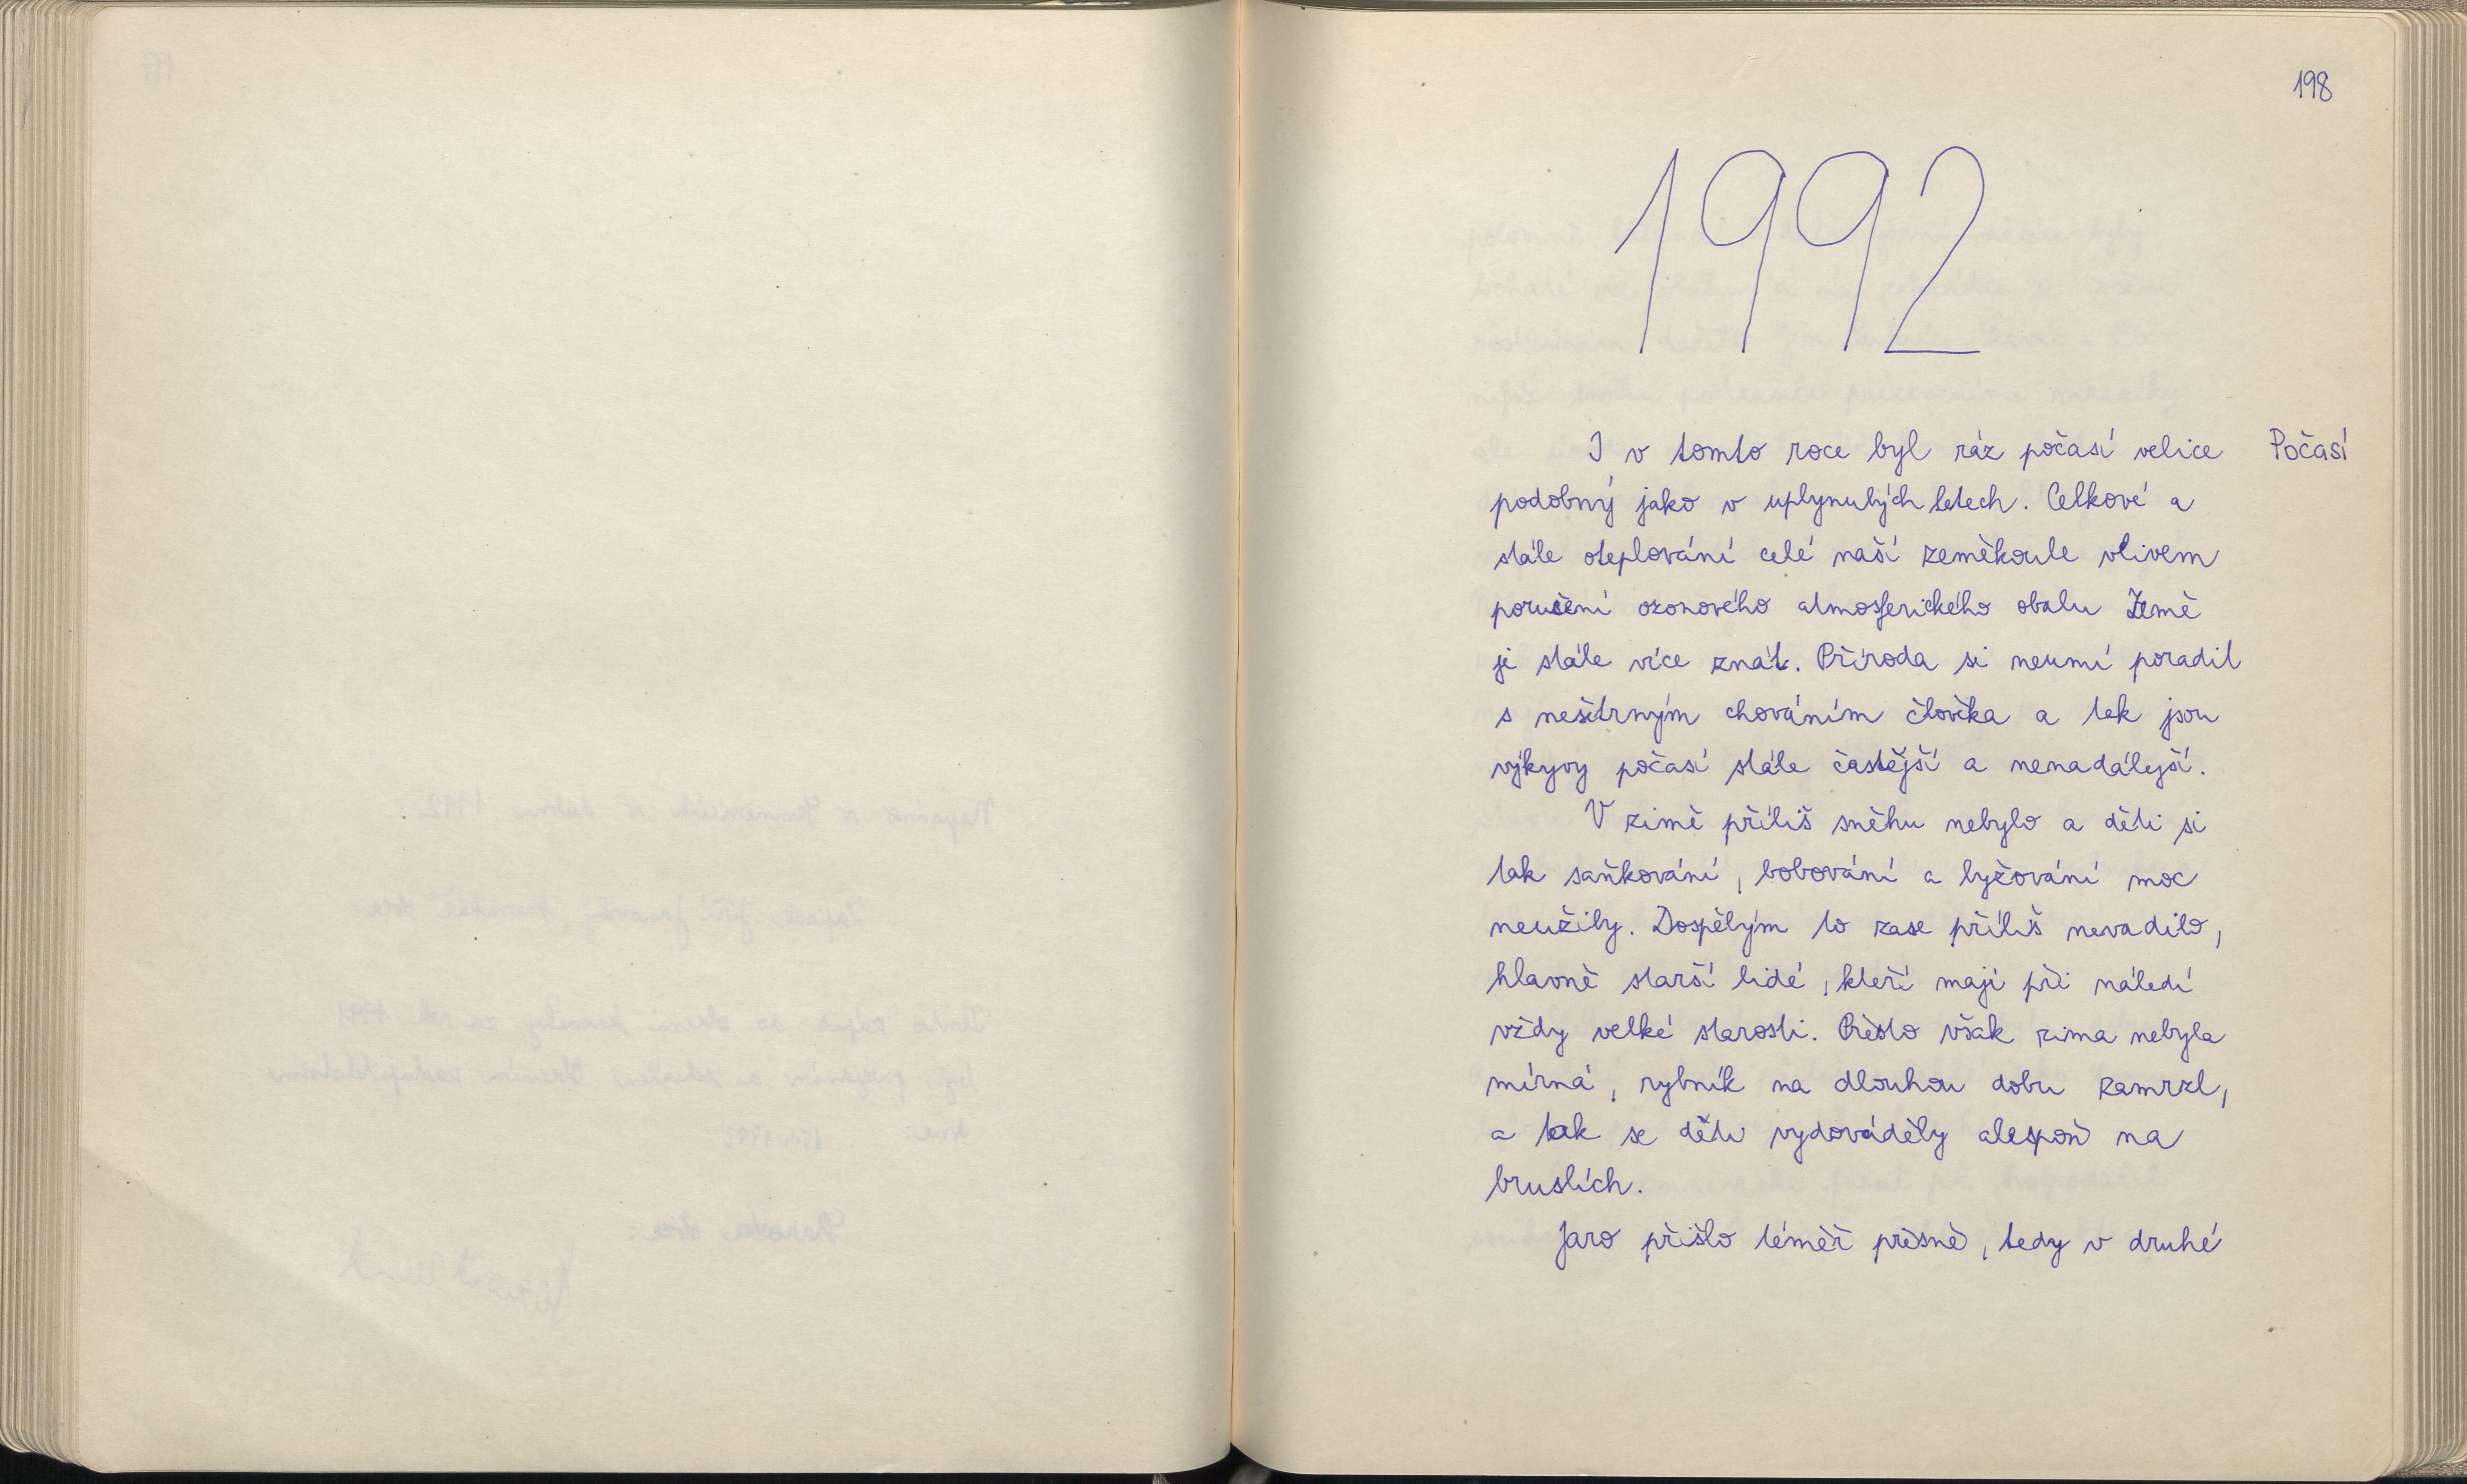 198
1992
I v tomto roce byl ráz počasí velice
Počasí
podobný jako v uplynulých letech. Celkové a
stále oteplování celé naší zeměkoule vlivem
porušení ozonového atmosferického obalu Země
je stále více znát. Příroda si neumí poradit
s nešetrným chováním člověka a tak jsou
výkyvy počasí stále častější a nenadálejší.
V zimě příliš sněhu nebylo a děti si
tak saňkování, bobování a lyžování moc
neužily. Dospělým to zase příliš nevadilo,
hlavně starší lidé, kteří mají při náledí
vždy velké starosti. Přesto však zima nebyla
mírná, rybník na dlouhou dobu zamrzl,
a tak se děti vydováděly alespoň na
bruslích.
Jaro přišlo téměř přesně, tedy v druhé